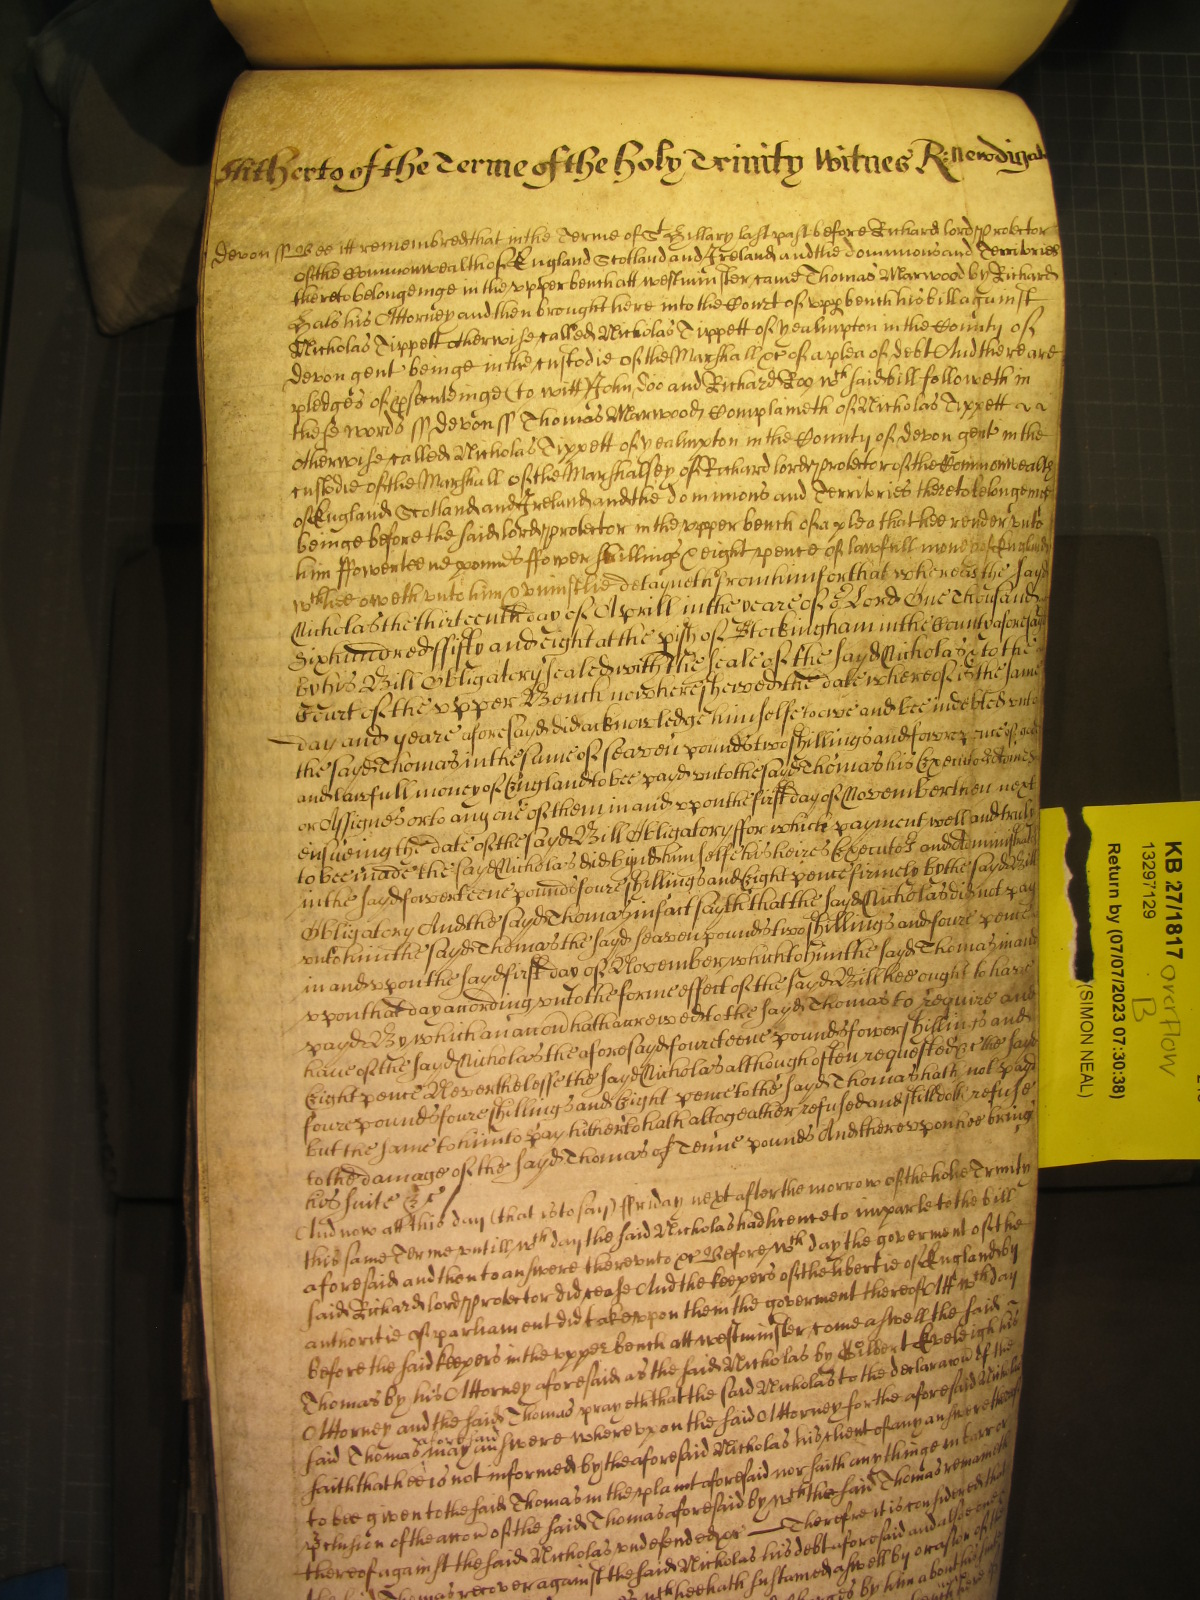 Hitherto of the Terme of the holy Trinity Witnes R: Newdigat
Devon ss Bee itt remembred that in the Terme of St Hillary last past before Richard lord protector
of the Commonwealth of England Scotland and Ireland and the dominions and Territories
thereto belongeinge in the upper bench att westminster came Thomas Marwood by Richard
Hals his Attorney and then brought here into the Court of upp bench his bill against
Nicholas Tippett otherwise called Nicholas Tippett of yealmpton in the County of
Devon gent beinge in the custodie of the Marshall &c of a plea of debt And there are
pledges of psecuteinge (to witt) John doo and Richard Roo wch said bill followeth in
these words ss Devon ss Thomas Marwood Complaineth of Nicholas Tippett
otherwise called Nicholas Tippett of yealmpton in the County of devon gent in the
custodie of the Marshall of the Marshallsey of Richard lord protector of the Commonwealth
of England Scotland and Ireland and the dominions and Territories thereto belongeinge
beinge before the said lord protector in the upper bench of a plea that hee render unto
him ffowerteene pounds ffower shillings & eight pence of lawfull money of England
wch hee oweth unto him & uniustlie detayneth from him for that whereas the sayd
Nicholas the thirteenth day of Aprill in the yeare of or Lord One Thousand
Six hundred ffifty and Eight at the pish of Stockingham in the County aforesayd
by his Bill Obligatory sealed with the seale of the sayd Nicholas & to the
Court of the upper Bench now here shewed the date whereof is the same
day and yeare aforesayd did acknowledge himselfe to owe and bee indebted unto
the sayd Thomas in the sume of seaven pounds two shillings and fower pence of good
and lawfull money of England to bee payd unto the sayd Thomas his Executors
or Assignes or to any one of them in and upon the first day of November then next
ensueing the date of the sayd Bill Obligatory ffor which payment well and truly
to bee made the sayd Nicholas did bynd himselfe his heires Executors and Administrators
in the sayd fowerteene pounds foure shillings and Eight pence firmely by the sayd Bill
Obligatory And the sayd Thomas in fact sayth that the sayd Nicholas did not pay
unto him the sayd Thomas the sayd seaven pounds two shillings and foure pence
in and upon the sayd first day of November which to him the sayd Thomas in and
upon that day according unto the forme effect of the sayd Bill hee ought to have
payd By which an accon hath accrewed to the sayd Thomas to require and
have of the sayd Nicholas the aforesayd fourteene pounds fower shillings and
Eight pence Neverthelesse the sayd Nicholas although often requested &c the sayd
foure pounds foure shillings and Eight pence to the sayd Thomas hath not payd
but the same to him to pay hitherto hath altogeather refused and still doth refuse
to the damage of the sayd Thomas of Tenne pounds And thereupon hee bring
his suite &c
And now att this day (that is to say) ffriday next after the morrow of the holie Trinity
this same Terme untill wch day the said Nicholas had licence to imparle to the bill
aforesaid and then to answere thereunto &c Before wch day the goverment of the
said Richard lord protector did cease And the keepers of the libertie of England by
authoritie of parliament did take upon them the goverment thereof Att wch day
before the said keepers in the upper bench att westminster come aswell the said
Thomas by his Attorney aforesaid as the said Nicholas by Gilbert Eveleigh his
Attorney and the said Thomas prayeth that the said Nicholas to the declaracon of the
said Thomas aforesaid may answere whereupon the said Attorney for the aforesaid Nicholas
saith that hee is not informed by the aforesaid Nicholas his client of any answere
to bee given to the said Thomas in the plaint aforesaid nor saith any thinge in barr or
pclusion of the accon of the said Thomas aforesaid by wch the said Thomas remaineth
thereof against the said Nicholas undefended &c Therefore it is considered that
the said Thomas recover against the said Nicholas his debt aforesaid and alsoe
wch hee hath sustained aswell by occasion of
by him about his suite
KB 27/1817
13297129
overflow
B
Return by (07/07/2023 07:30:38)
(SIMON NEAL)